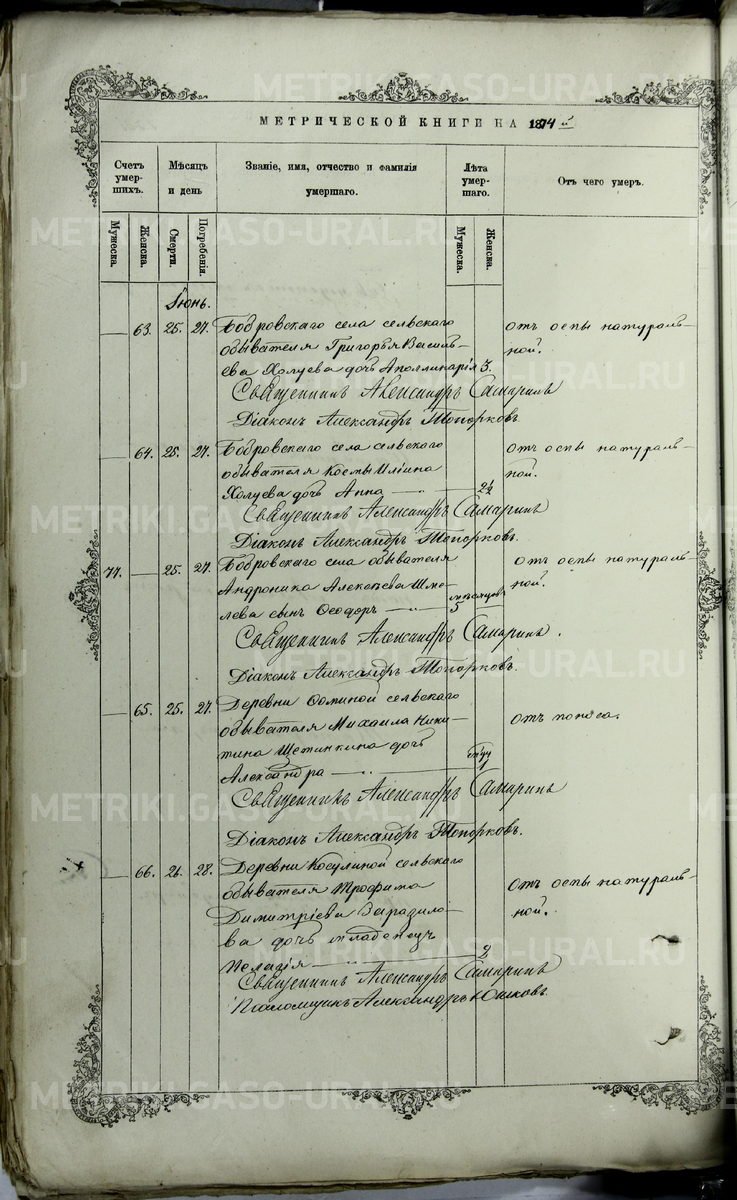 МЕТРИЧЕСКОЙ КНИГИ НА 1874 й
Счетъ умер-шихъ.
Мѣсяцъ и день
Званіе, имя, отчество и фамилія умершаго.
Лѣта умер-шаго.
Отъ чего умеръ.
Мужеска.
Женска.
Смерти.
Погребенія.
Мужеска.
Женска.
Іюнь.
63. 25. 27. Бобровскаго села сельскаго
обывателя Григорья Василь-
ева Холуева дочь Аполлинарія 3.
отъ оспы натураль-
ной.
Священникъ Александръ Самаринъ
Діаконъ Александръ Топорковъ.
64. 25. 27. Бобровскаго села сельскаго
обывателя Космы Иліина
Холуева дочь Анна 2½
отъ оспы натураль-
ной.
Священникъ Александръ Самаринъ
Діаконъ Александръ Топорковъ.
77. 25. 27. Бобровскаго села обывателя
Андроника Алексѣева Шме-
лева сынъ Ѳеодоръ 5 мѣсяцевъ
отъ оспы натураль-
ной.
Священникъ Александръ Самаринъ.
Діаконъ Александръ Топорковъ.
65. 25. 27. Деревни Ѳоминой сельскаго
обывателя Михаила Ники-
тина Щетинкина дочь
Александра 1
отъ поноса.
Священникъ Александръ Самаринъ
Діаконъ Александръ Топорковъ.
66. 26. 28. Деревни Косулиной сельскаго
обывателя Трофима
Димитріева
ва дочь младенецъ
Пелагія 2
отъ оспы натураль-
ной.
Священникъ Александръ Самаринъ
Псаломщикъ Александръ Юшковъ.
METRIKI.GASO-URAL.RU